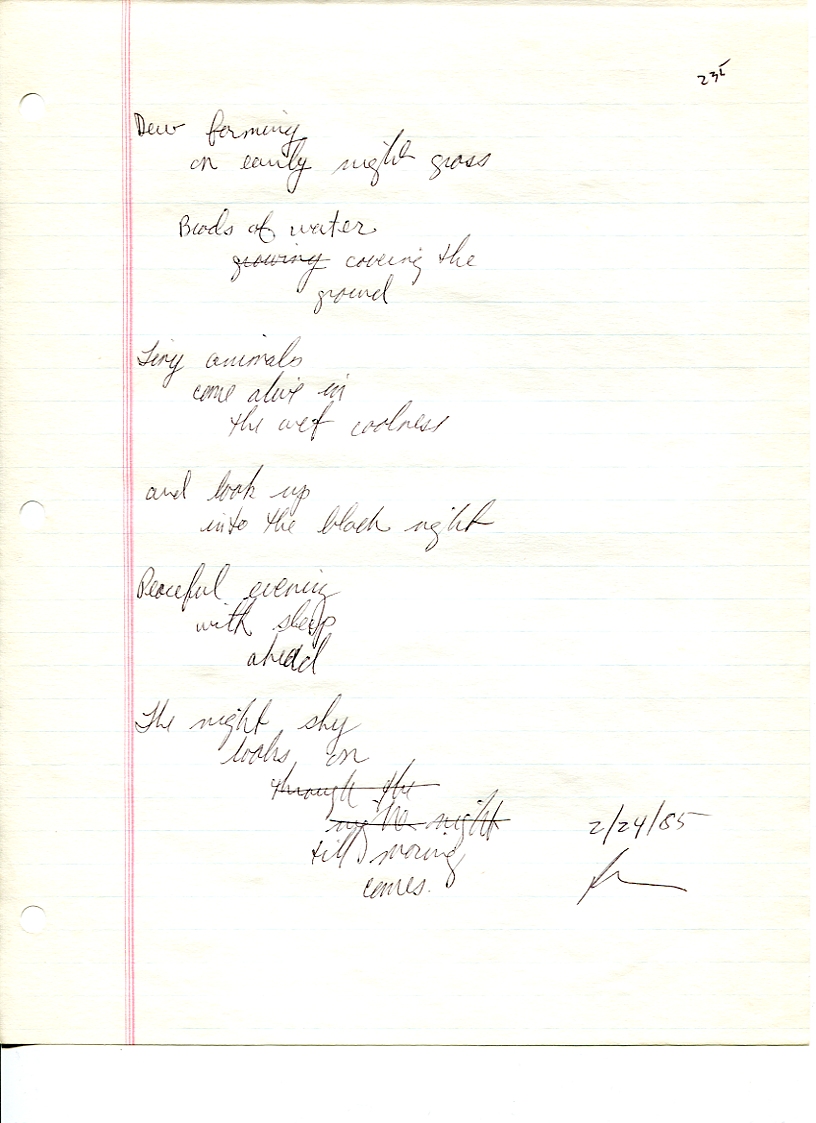 235
Dew forming
on early night grass
Beads of water
growing covering the
ground
Tiny animals
come alive in
the wet coolness
and look up
into the black night
Peaceful evening
with sleep
ahead
The night sky
looks on
through the
night
till moring
comes.
2/24/85